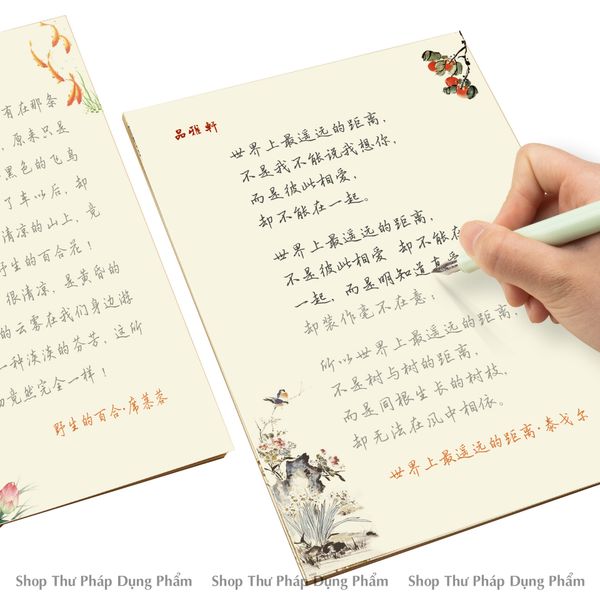 有在那条
，原来只是
黑色的飞鸟
了车以后，却
清凉的山上，竟
野生的百合花！
很清凉，是黄昏的
的云雾在我们身边游
一种淡淡的芬芳，这所
切竟然完全一样！
野生的百合·席慕蓉
品雅轩
世界上最遥远的距离，
不是我不能说我想你，
而是彼此相爱，
却不能在一起。
世界上最遥远的距离，
不是彼此相爱 却不能在
一起，而是明知道真爱
却装作毫不在意；
所以世界上最遥远的距离，
不是树与树的距离，
而是同根生长的树枝，
却无法在风中相依。
世界上最遥远的距离·泰戈尔
Shop Thư Pháp Dụng Phẩm Shop Thư Pháp Dụng Phẩm Shop Thư Pháp Dụng Phẩm